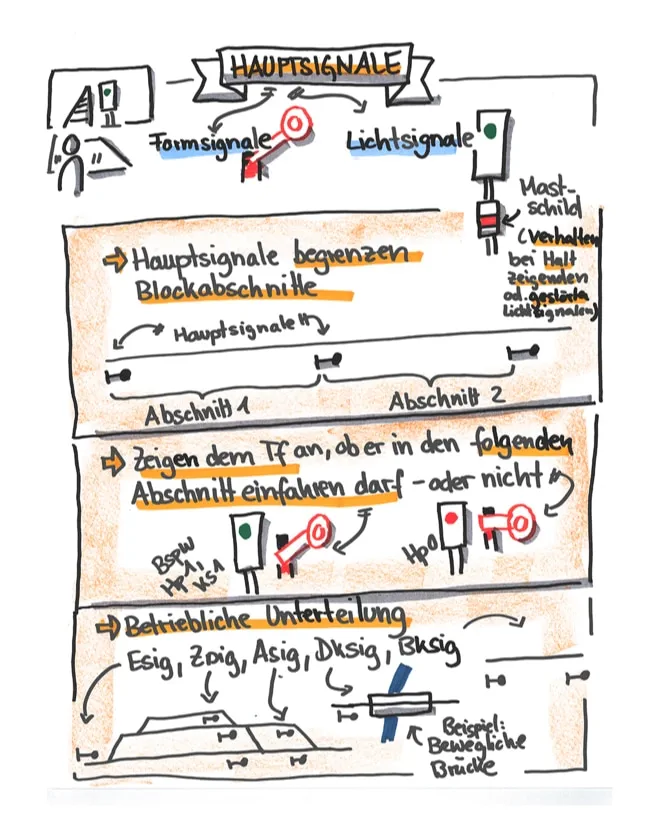 HAUPTSIGNALE
Formsignale
Lichtsignale
Mast-
schild
(Verhalten
bei Halt
zeigenden
od. gestörte
Lichtsignalen)
Hauptsignale begrenzen
Blockabschnitte
Hauptsignale
Abschnitt 1
Abschnitt 2
Zeigen dem Tf an, ob er in den folgenden
Abschnitt einfahren darf - oder nicht
BSPW
HP 1, KS1
Hp0
Betriebliche Unterteilung
Esig, Zsig, Asig, Dksig, Bksig
Beispiel:
Bewegliche
Brücke